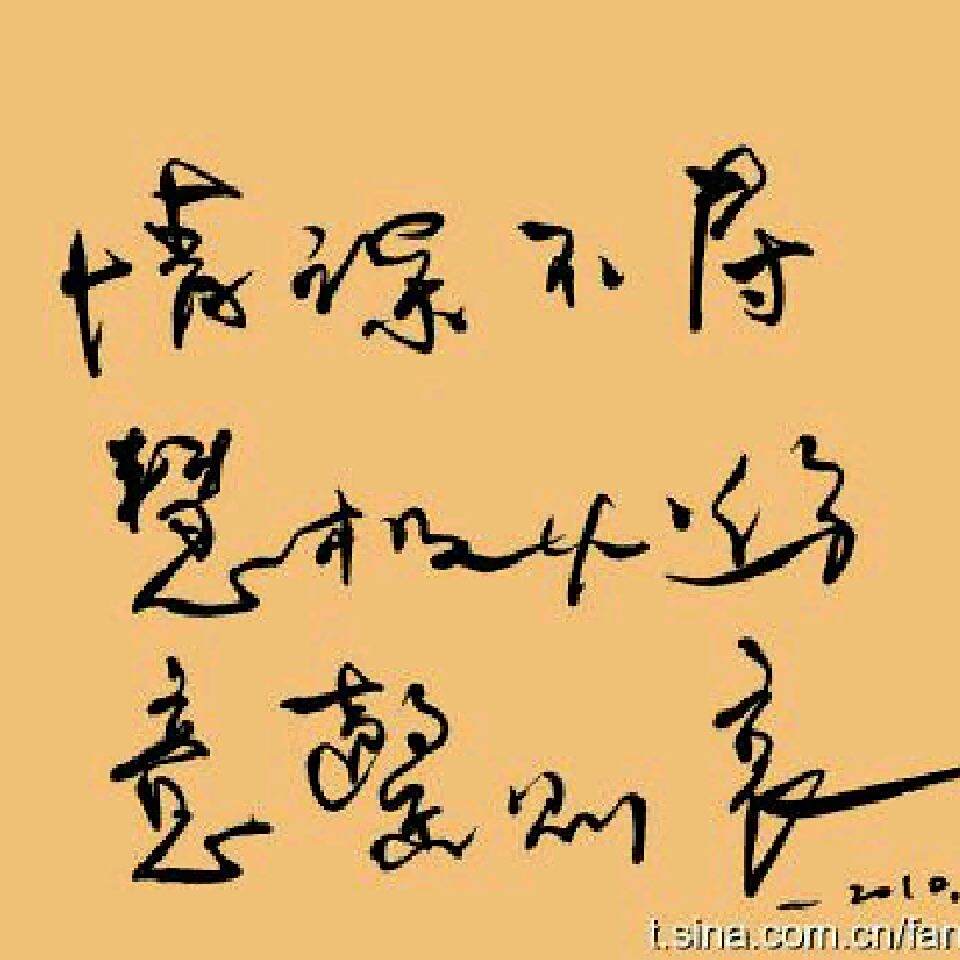 情深不寿
慧极必伤
意罄则衰
2010.
t.sina.com.cn/fan